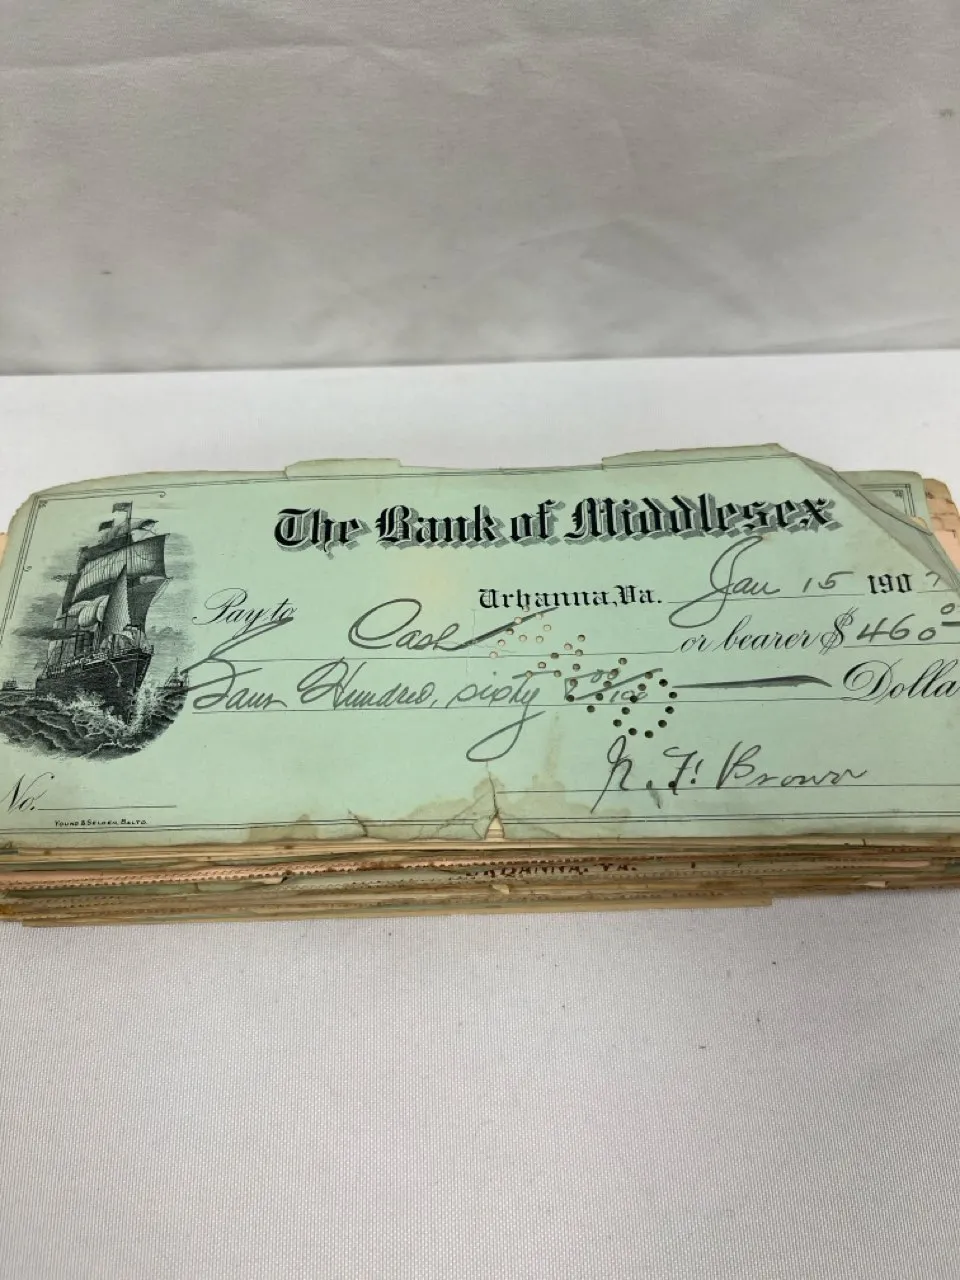 The Bank of Middlesex
Urbanna, Va. Jan 15 1907
Pay to Cash or bearer $ 460 0
Four Hundred, sixty 00/100 Dolla
N. F. Brown
No.
YOUNG & SELDEN, BALTO.
URBANNA, VA.